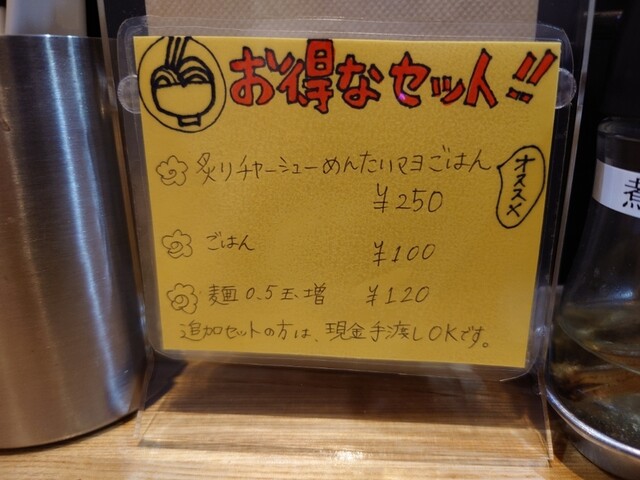 お得なセット!!
炙りチャーシューめんたいマヨごはん
オススメ
¥250
ごはん ¥100
麺0.5玉増 ¥120
追加セットの方は、現金手渡しOKです。
煮